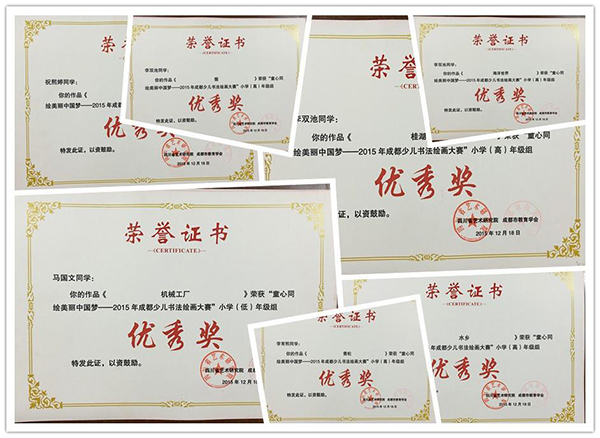 荣誉证书
祝熙婷同学:
你的作品《
绘美丽中国梦——2015年成都少儿书
优秀
特发此证,以资鼓励。
2015年12月18日
荣誉证书
(CERTIFICATE)
李双池同学:
你的作品《
》荣获“童心同
绘美丽中国梦——2015年成都少儿书法绘画大赛”小学(高)年级组
优秀奖
特发此证,以资鼓励。
四川省艺术研究院 成都市教育学会
2015年12月18日
荣誉证书
(CERTIFICATE)
李双池同学:
你的作品《 海洋世界 》荣获“童心同
绘美丽中国梦——2015年成都少儿书法绘画大赛”小学(高)年级组
优秀奖
特发此证,以资鼓励。
四川省艺术研究院 成都市教育学会
2015年12月18日
李双池同学:
你的作品《 桂湖
》荣获“童心同
绘美丽中国梦——2015年成都少儿书法绘画大赛”小学(高)年级组
优秀奖
特发此证,以资鼓励。
四川省艺术研究院 成都市教育学会
2015年12月18日
荣誉证书
(CERTIFICATE)
马国文同学:
你的作品《 机械工厂 》荣获“童心同
绘美丽中国梦——2015年成都少儿书法绘画大赛”小学(低)年级组
优秀奖
特发此证,以资鼓励。
四川省艺术研究院
2015年
荣誉证书
(CERTIFICATE)
水乡 》荣获“童心同
少儿书法绘画大赛”小学(高)年级组
秀奖
四川省艺术研究院 成都市教育学会
2015年12月18日
荣誉证书
(CERTIFICATE)
同学:
你的作品《
》荣获“童心同
绘美丽中国梦——2015年成都少儿书法绘画大赛”小学(高)年级组
优秀奖
特发此证,以资鼓励。
四川省艺术研究院 成都市教育学会
2015年12月18日